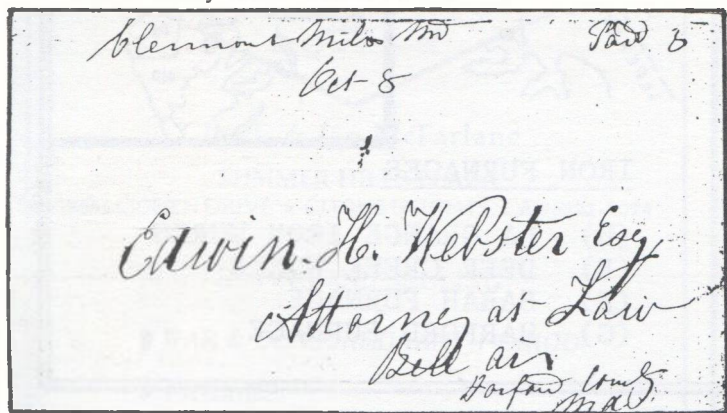 Clermont Mills Md Paid 3
Oct 8
Edwin. H. Webster Esq
Attorney at Law
Bell air
Harford County
Md
IRON FURNACES